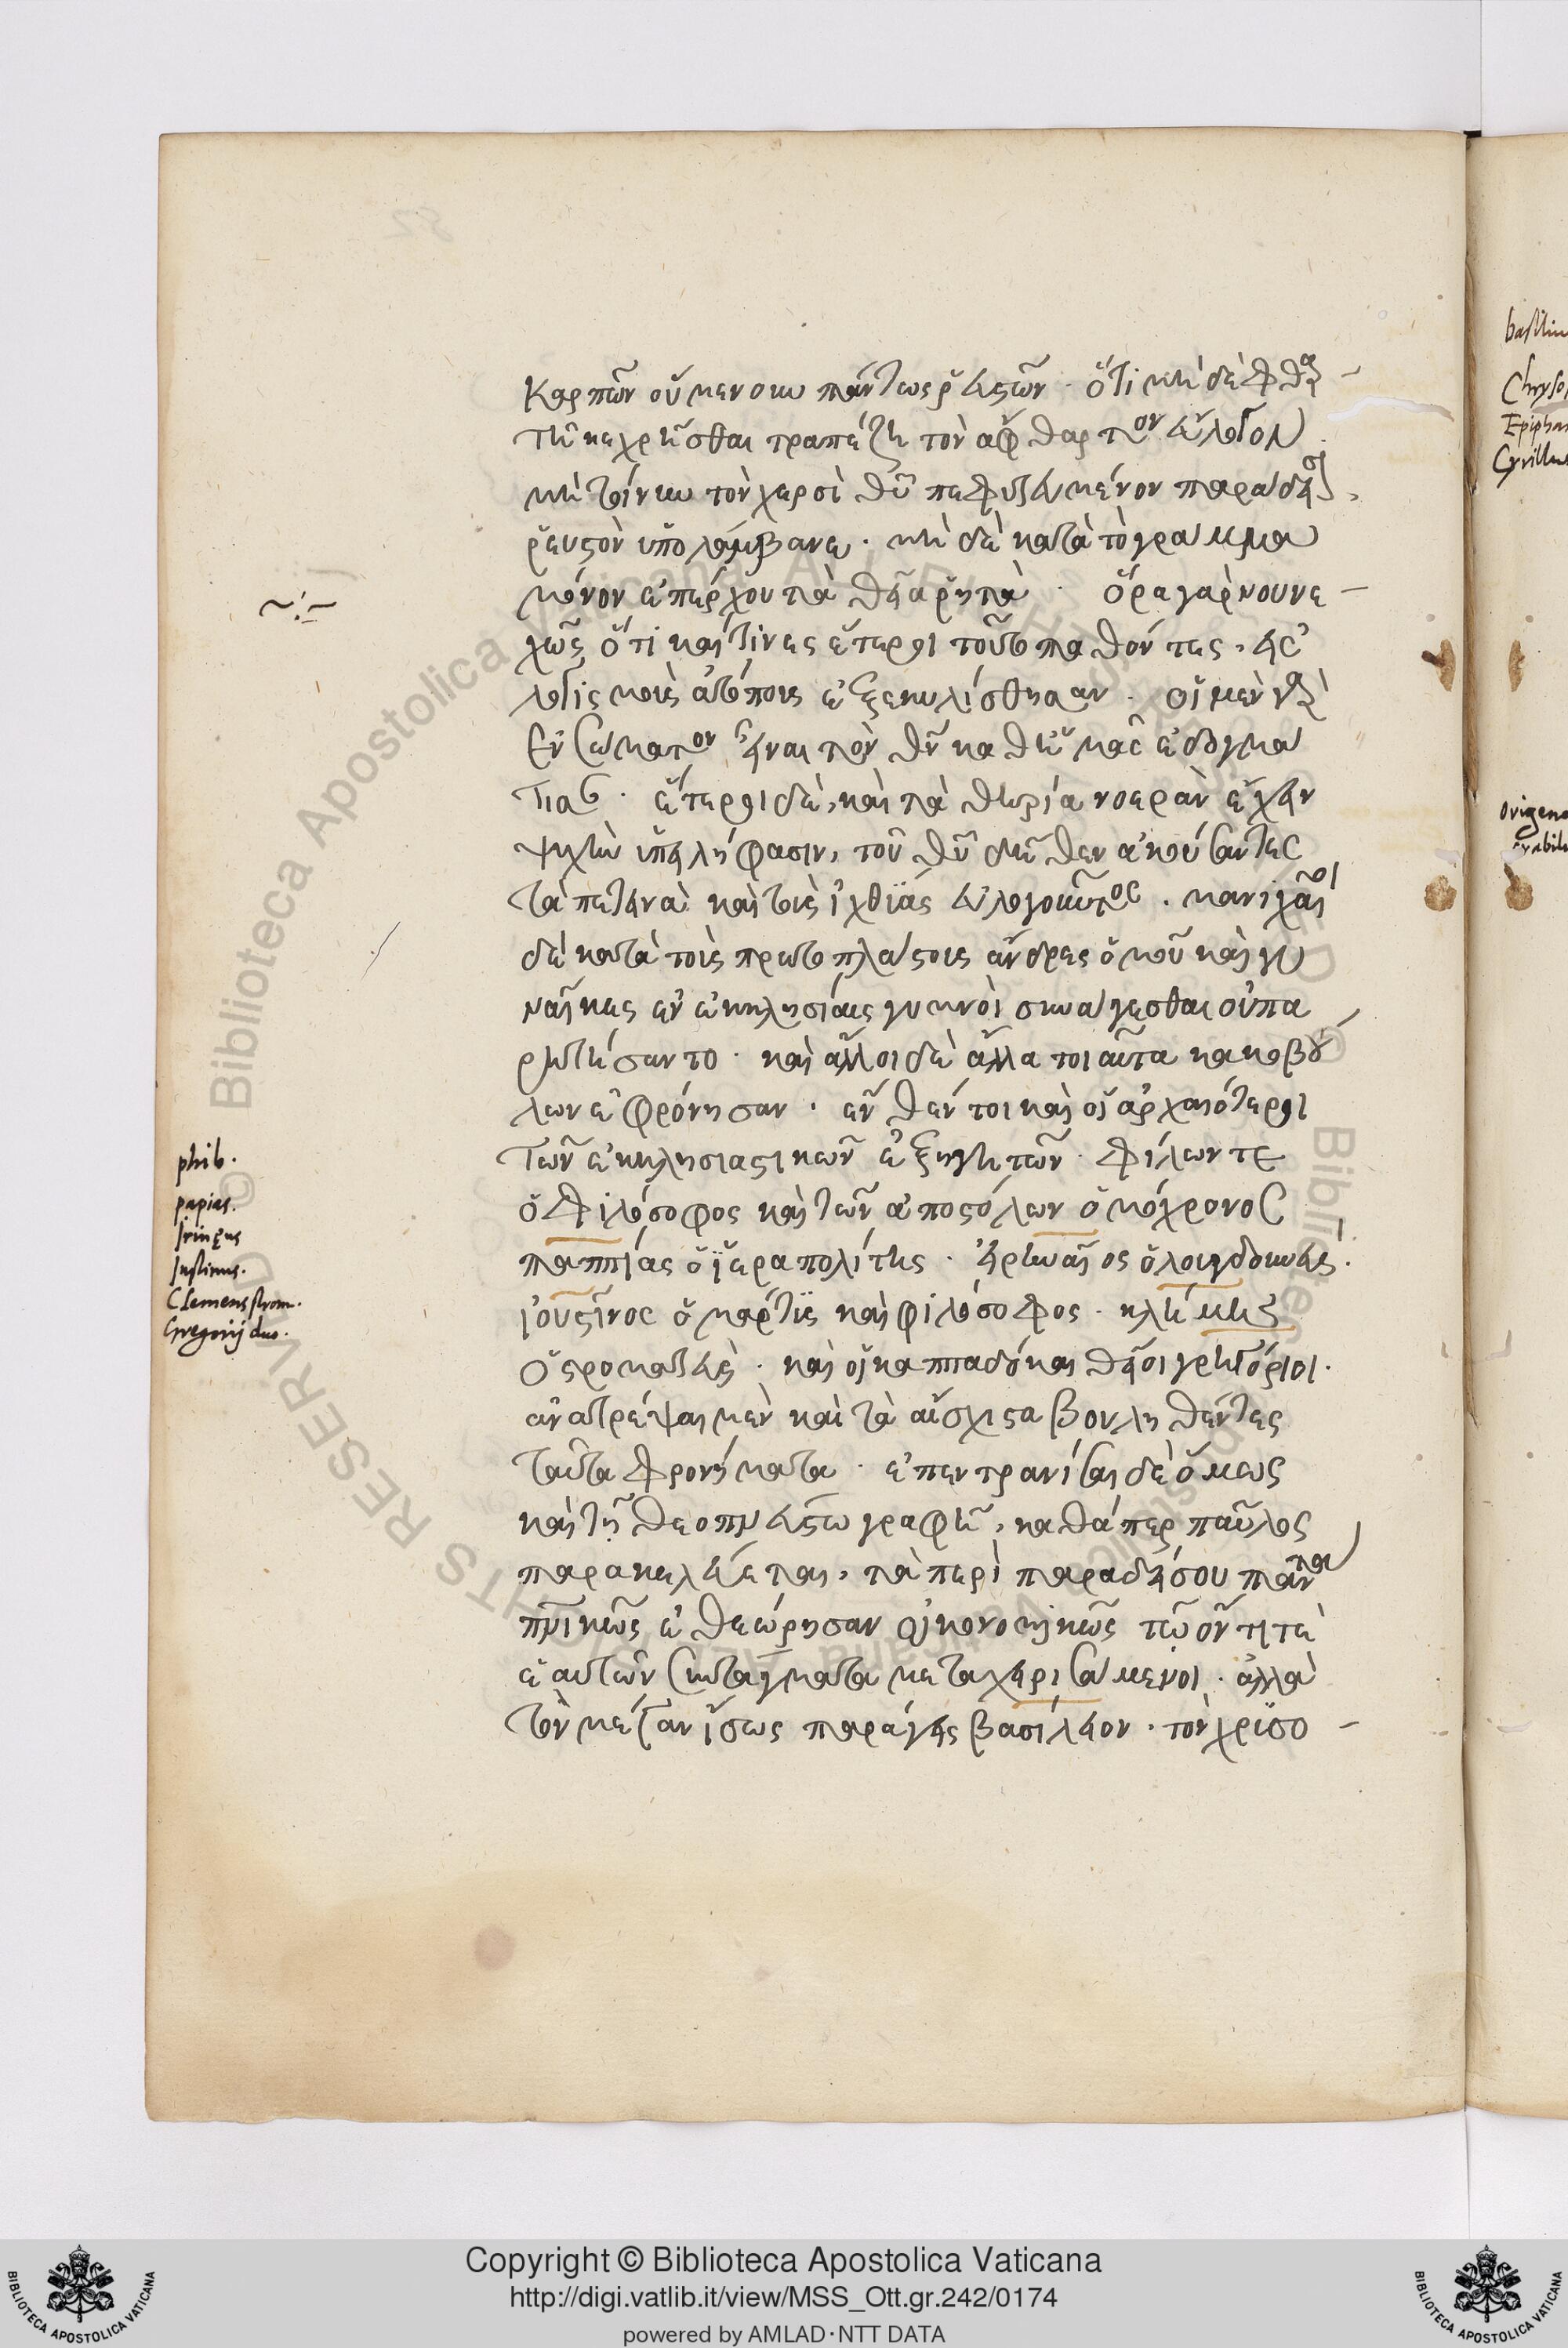 καρπῶν οὐ μενοῦν πάντως ῥευστῶν · ὅτι μὴ δὲ φθαρ
τῇ κεχρῆσθαι τραπέζῃ τὸν ἄφθαρτον εὔλογον
μὴ τοίνυν τὸν χερσὶ θῦ πεφυτευμένον παράδεισον,
ῥευστὸν ὑπολάμβανε · μὴ δὲ κατὰ τὸ γράμμα
μόνον ἐπέρχου τὰ θεῖα ῥητὰ · ὅρα γὰρ νουνε
χῶς ὅτι καί τινες ἕτεροι τοῦτο παθόντες, εἰς
λογισμοὺς ἀτόπους ἐξεκυλίσθησαν · οἱ μὲν γὰρ
ἐνσώματον εἶναι τὸν θν καθ' ἡμᾶς ἐδογμά
τισαν · ἕτεροι δὲ, καὶ τὰ θηρία νοερὰν ἔχειν
ψυχὴν ὑπειλήφασιν, τοῦ θῦ δῆθεν ἀκούσαντες
τὰ πετεινὰ καὶ τοὺς ἰχθύας εὐλογοῦντος · μανιχαῖοι
δὲ κατὰ τοὺς πρωτοπλάστους ἄνδρες ὁμοῦ καὶ γυ
ναῖκες ἐν ἐκκλησίαις γυμνοὶ συνάγεσθαι οὐ πα
ρῃτήσαντο · καὶ ἄλλοι δὲ ἄλλα τοιαῦτα κακοβού
λων ἐφρόνησαν · ἔνθέν τοι καὶ οἱ ἀρχαιότεροι
τῶν ἐκκλησιαστικῶν ἐξηγητῶν · φίλων τε
ὁ φιλόσοφος καὶ τῶν ἀποστόλων ὁμόχρονος
παππίας ὁ ἱεραπολίτης · εἰρηναῖος ὁ λουγδουνεύς ·
ἰουστῖνος ὁ μάρτυς καὶ φιλόσοφος · κλήμης
ὁ στρωματεὺς · καὶ οἱ καππαδόκαι θεῖοι γρηγόριοι ·
ἀνατρέψαι μὲν καὶ τὰ αἴσχιστα βουληθέντες
ταῦτα φρονήματα · ἐπεντρανίσαι δὲ ὅμως
καὶ τῇ θεοπνεύστῳ γραφῇ, καθάπερ παῦλος
παρακελεύεται, τὰ περὶ παραδείσου πάντα
πνικῶς ἐθεώρησαν οἰκονομικῶς τῷ ὄντι τὲ
ἑαυτῶν συντάγματα μεταχειρισάμενοι · ἀλλὰ
τὸν μέγαν ἴσως παράγεις βασίλειον · τὸν χρυσο
philo.
papias.
Irinęus
Iustinus.
Clemens strom.
Gregorij duo.
Chryso
Epipha
Cyrillus
origene
Copyright © Biblioteca Apostolica Vaticana
http://digi.vatlib.it/view/MSS_Ott.gr.242/0174
powered by AMLAD·NTT DATA
BIBLIOTECA APOSTOLICA VATICANA
BIBLIOTECA APOSTOLICA VATICANA